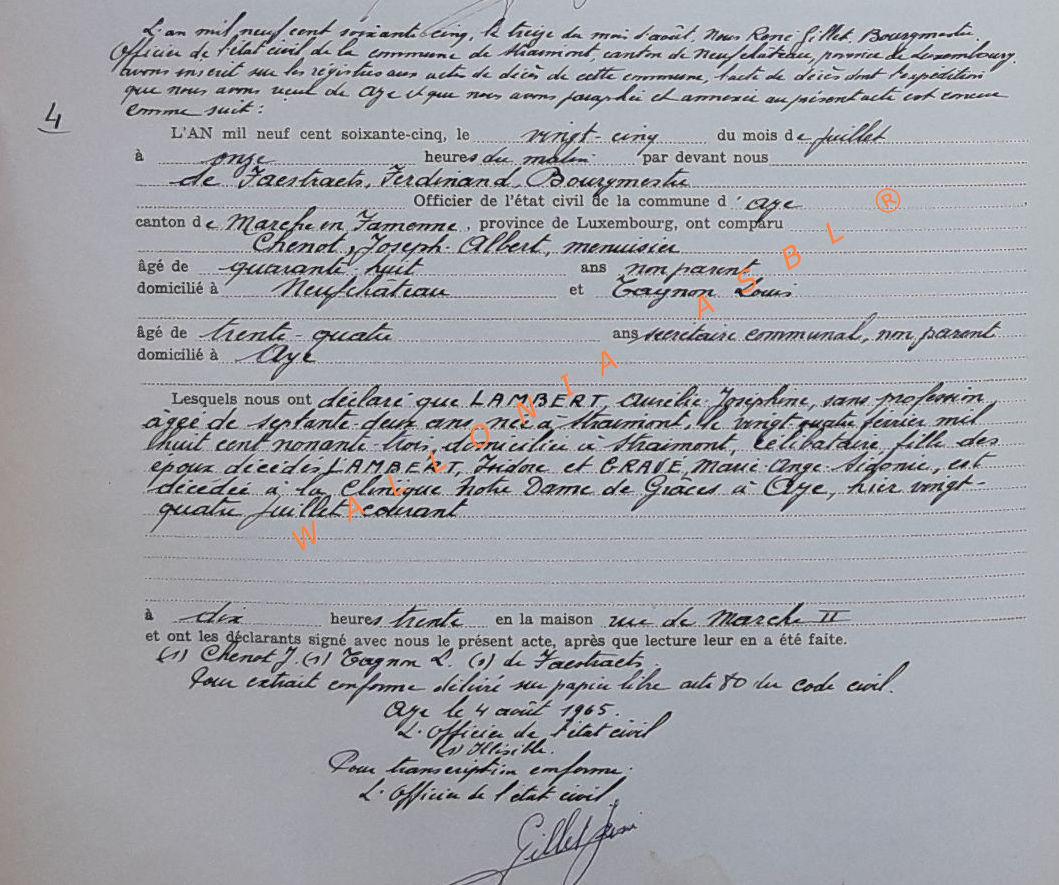 L'an mil neuf cent soixante cinq, le treize du mois d'août, Nous René Gillet, Bourgmestre
Officier de l'état civil de la commune de Straimont, canton de Neufchâteau, province de Luxembourg,
avons inscrit sur les régistres aux acte de décès de cette commune, l'acte de décès dont l'expédition
que nous avons reçue de Aye et que nous avons paraphée et annexée au présent acte est conçue
comme suit :
4
L'AN mil neuf cent soixante-cinq, le vingt-cinq du mois de juillet
à onze heures du matin par devant nous
de Jaestraets, Ferdinand, Bourgmestre
Officier de l'état civil de la commune d'Aye
canton de Marche en Famenne, province de Luxembourg, ont comparu
Chenot, Joseph-Albert, menuisier
âgé de quarante huit ans non parent
domicilié à Neufchateau et Tagnon Louis
âgé de trente-quatre ans secrétaire communal, non parent
domicilié à Aye
Lesquels nous ont déclaré que LAMBERT, Aurélie Joséphine, sans profession
âgée de septante-deux ans, née à Straimont, le vingt quatre février mil
huit cent nonante trois, domiciliée à Straimont, célibataire, fille des
époux décédés LAMBERT, Isidore et GRAVE, Marie-Ange Sidonie, est
décédée à la Clinique Notre Dame de Grâces à Aye, hier vingt-
quatre juillet courant
à dix heures trente en la maison rue de Marche II
et ont les déclarants signé avec nous le présent acte, après que lecture leur en a été faite.
(s) Chenot J. (s) Tagnon L. (s) de Jaestraets.
Pour extrait conforme délivré sur papier libre acte 80 du code civil.
Aye le 4 août 1965.
L'Officier de l'état civil
(s) Illisible.
Pour transcription conforme.
L'Officier de l'état civil,
Gillet René
WALLONIA ASBL ®